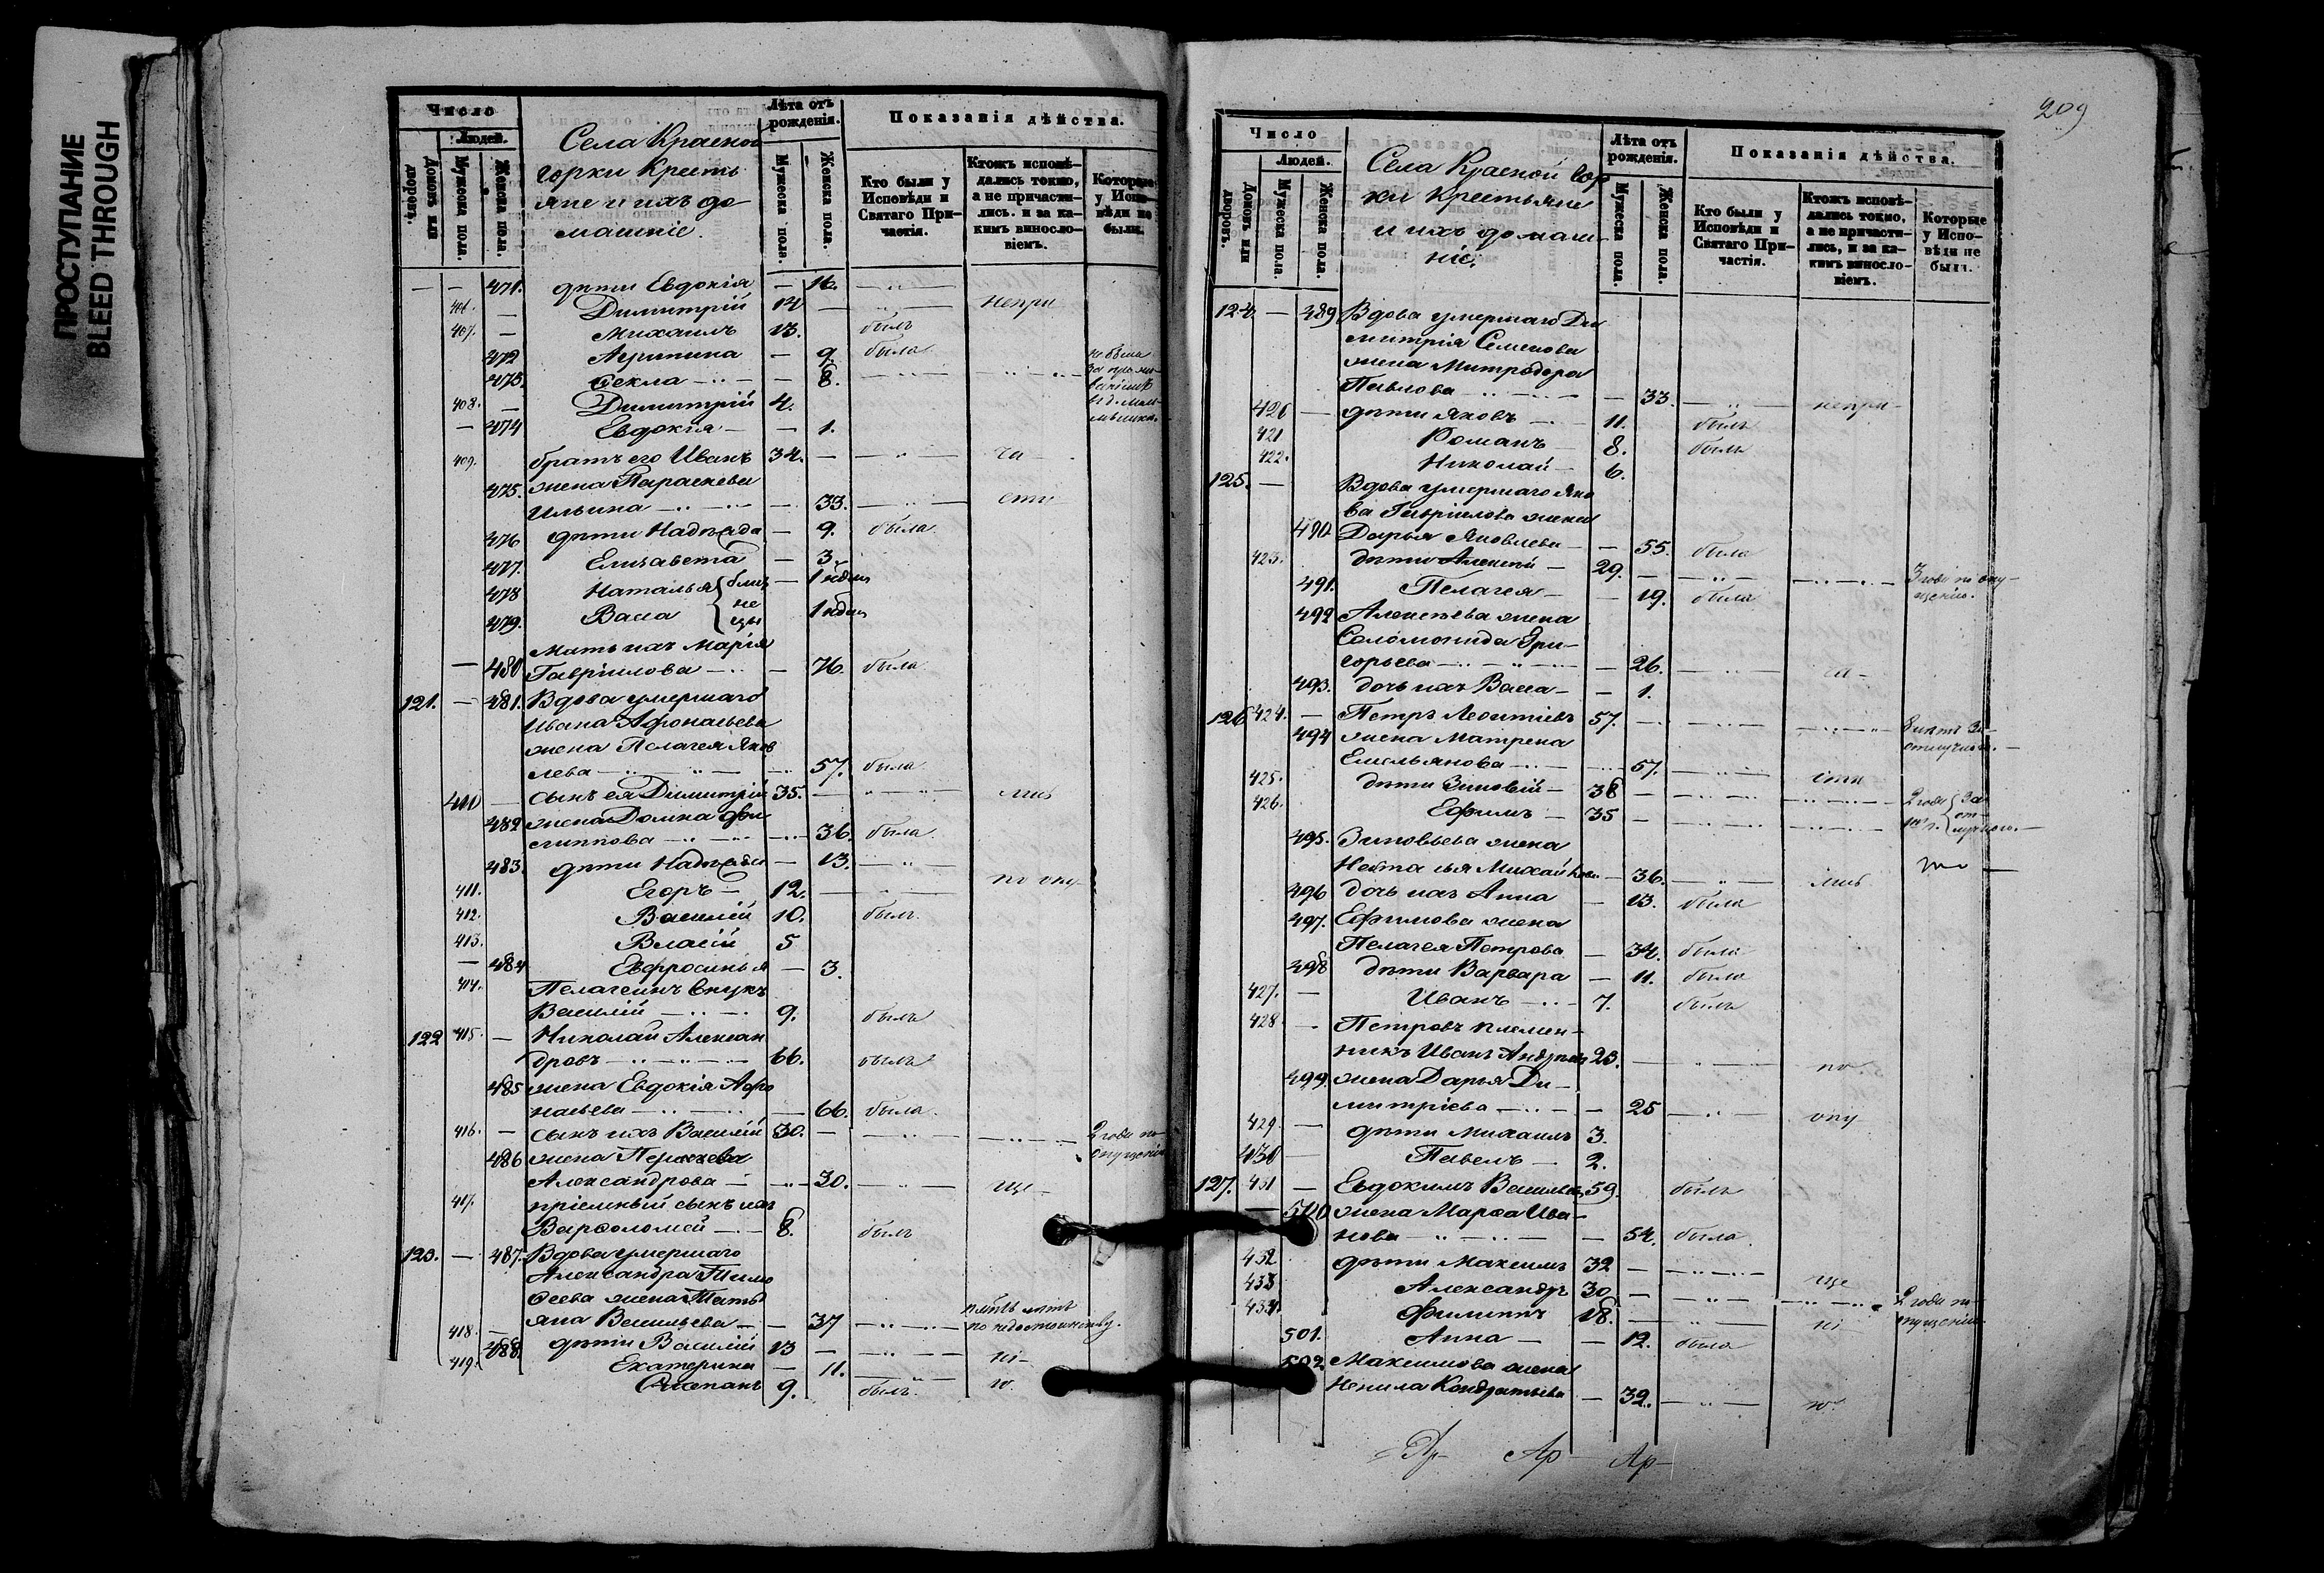 ПРОСТУПАНИЕ
BLEED THROUGH
Число
Людей.
Домовъ или дворовъ.
Мужеска пола.
Женска пола.
Села Красной
горки Кресть
яне и ихъ до
машніе.
Лѣта отъ рожденія.
Мужеска пола.
Женска пола.
Показанія дѣйства.
Кто были у Исповѣди и Святаго Причастія.
Ктожъ исповѣдались токмо, а не причастились. и за какимъ винословіемъ.
Которые у Исповѣди не были.
— — 471. дѣти Евдокія — 16.
406. — Димитрій 14 — непри
407. — Михаилъ 13. былъ
472 Агрипина — 9. была
473. Ѳекла — 8.
408. — Димитрій 4.
— 474 Евдокія — 1.
409. братъ его Иванъ 34. — ча
475. жена Параскева
Ильина — 33. — сти
476 дѣти Надежда — 9. была
477. Елизавета — 3.
478 Наталья близ —
479. Васса не цы
мать ихъ Марія
— 480 Гавріилова — 76. была
121. — 481. Вдова умершаго
Ивана Афонасьева
жена Пелагея Яков
лева — 57. была
410 — сынъ ея Димитрій 35. — лис
482 жена Домна Фи
липпова — 36. была
483. дѣти Надежда — 13.
411. Егоръ — 12. — по опу
412. Василій 10. былъ
413. Власій 5
— 484 Евфросинья — 3.
414. Пелагеинъ внукъ
Василій — 9. былъ
122 415. — Николай Алексан
дровъ — 66. былъ
485 жена Евдокія Афо
насьева — 66. была
416. — сынъ ихъ Василій 30. — 2 года по
опущенію
486 жена
Александрова — 30. — ще
417. пріемный сынъ ихъ
Варѳоломей — 8. былъ
123. — 487. Вдова умершаго
Александра Тимо
ѳеева жена Татья
яна Васильева — 37 — по недостоинству.
418. — дѣти Василій 13 — ні
488. Екатерина — 11. — ю.
419. Степанъ 9. былъ.
209
Число
Людей.
Домовъ или дворовъ.
Мужеска пола.
Женска пола.
Села Красной Гор
ки Крестьяне
и ихъ домаш
ніе.
Лѣта отъ рожденія.
Мужеска пола.
Женска пола.
Показанія дѣйства.
Кто были у Исповѣди и Святаго Причастія.
Ктожъ исповѣдались токмо, а не причастились, и за какимъ винословіемъ.
Которые у Исповѣди не были.
124 — 489 Вдова умершаго Ди
митрія Семенова
жена Митродора
Павлова — 33. — непри
420 — дѣти Яковъ — 11. былъ
421 Романъ 8. былъ
422. Николай — 6.
125. — Вдова умершаго Яко
ва Гавріилова жена
490 Дарья Яковлева — 55. была
423. дѣти Алексѣй — 29. — 3 года по опу
щенію.
491. Пелагея — 19. была
492 Алексѣева жена
Соломонида Гри-
горьева — 26. — ча-
493. дочь ихъ Васса — 1.
126 424. — Петръ Леонтіевъ 57. — 8 лѣтъ за
отлучкою.
494 жена Матрена
Емельянова — 57. — сти
425. дѣти Зиновій — 38 — 2 года за
426. Ефимъ — 35 — от
лучкою.
495. Зиновьева жена
Наталья Михайлова — 36. — лис
496 дочь ихъ Анна — 13. была
497. Ефимова жена
Пелагея Петрова — 34. была
498 дѣти Варвара — 11. была
427. — Иванъ — 7. былъ
428 — Петровъ племен-
никъ Иванъ Андреевъ 23. — по
499. жена Дарья Ди-
митріева — 25 — опу
429. — дѣти Михаилъ 3.
430 — Павелъ — 2.
127. 431 — Евдокимъ Васильевъ 59. былъ
— 500 жена Марѳа Ива-
нова — 54. была
432 дѣти Максимъ 32 — ще
433 Александръ 30 — 2 года по
опущенію
434. Филиппъ 18. — ні
501. Анна — 12. была
502 Максимова жена
Ненила Кондратьева — 32. — ю.